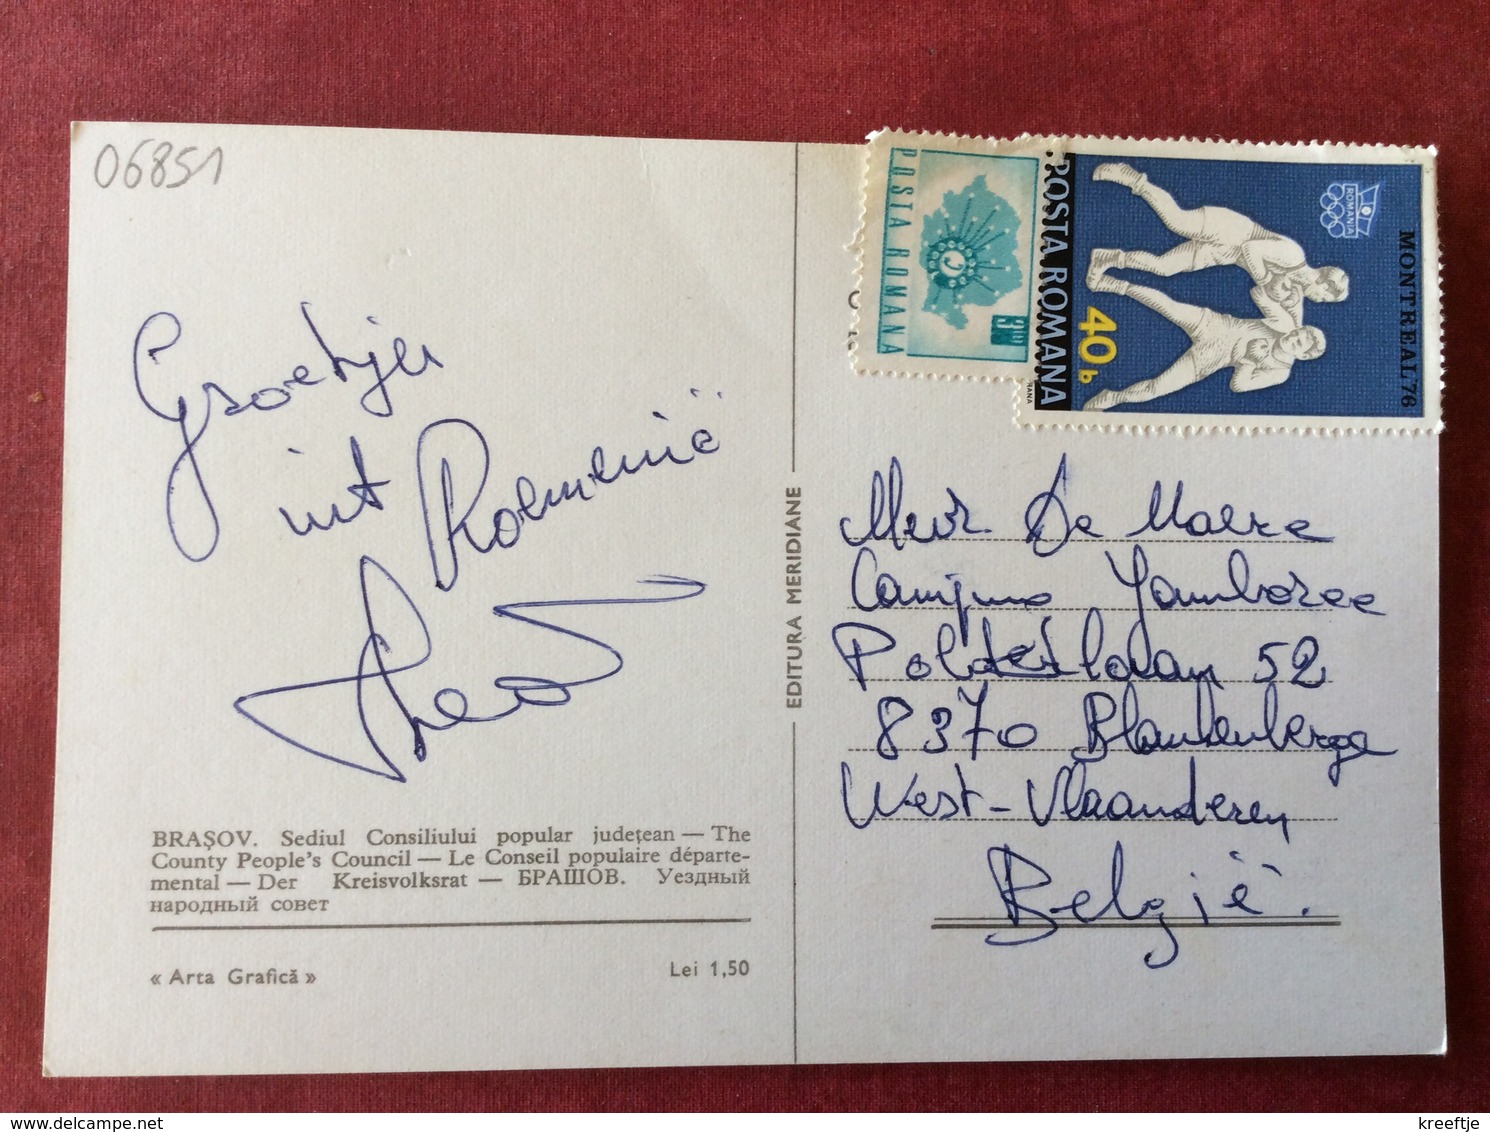 06851
Groetjes
uit Roemenië
Theo
BRAȘOV. Sediul Consiliului popular județean — The
County People's Council — Le Conseil populaire départe-
mental — Der Kreisvolksrat — БРАШОВ. Уездный
народный совет
« Arta Grafică »
Lei 1,50
EDITURA MERIDIANE
POSTA ROMANA
POSTA ROMANA
40 b
ROMANIA
MONTREAL '76
Mevr. De Maere
Camping Jamboree
Polderlaan 52
8370 Blankenberge
West-Vlaanderen
België.
kreeftje